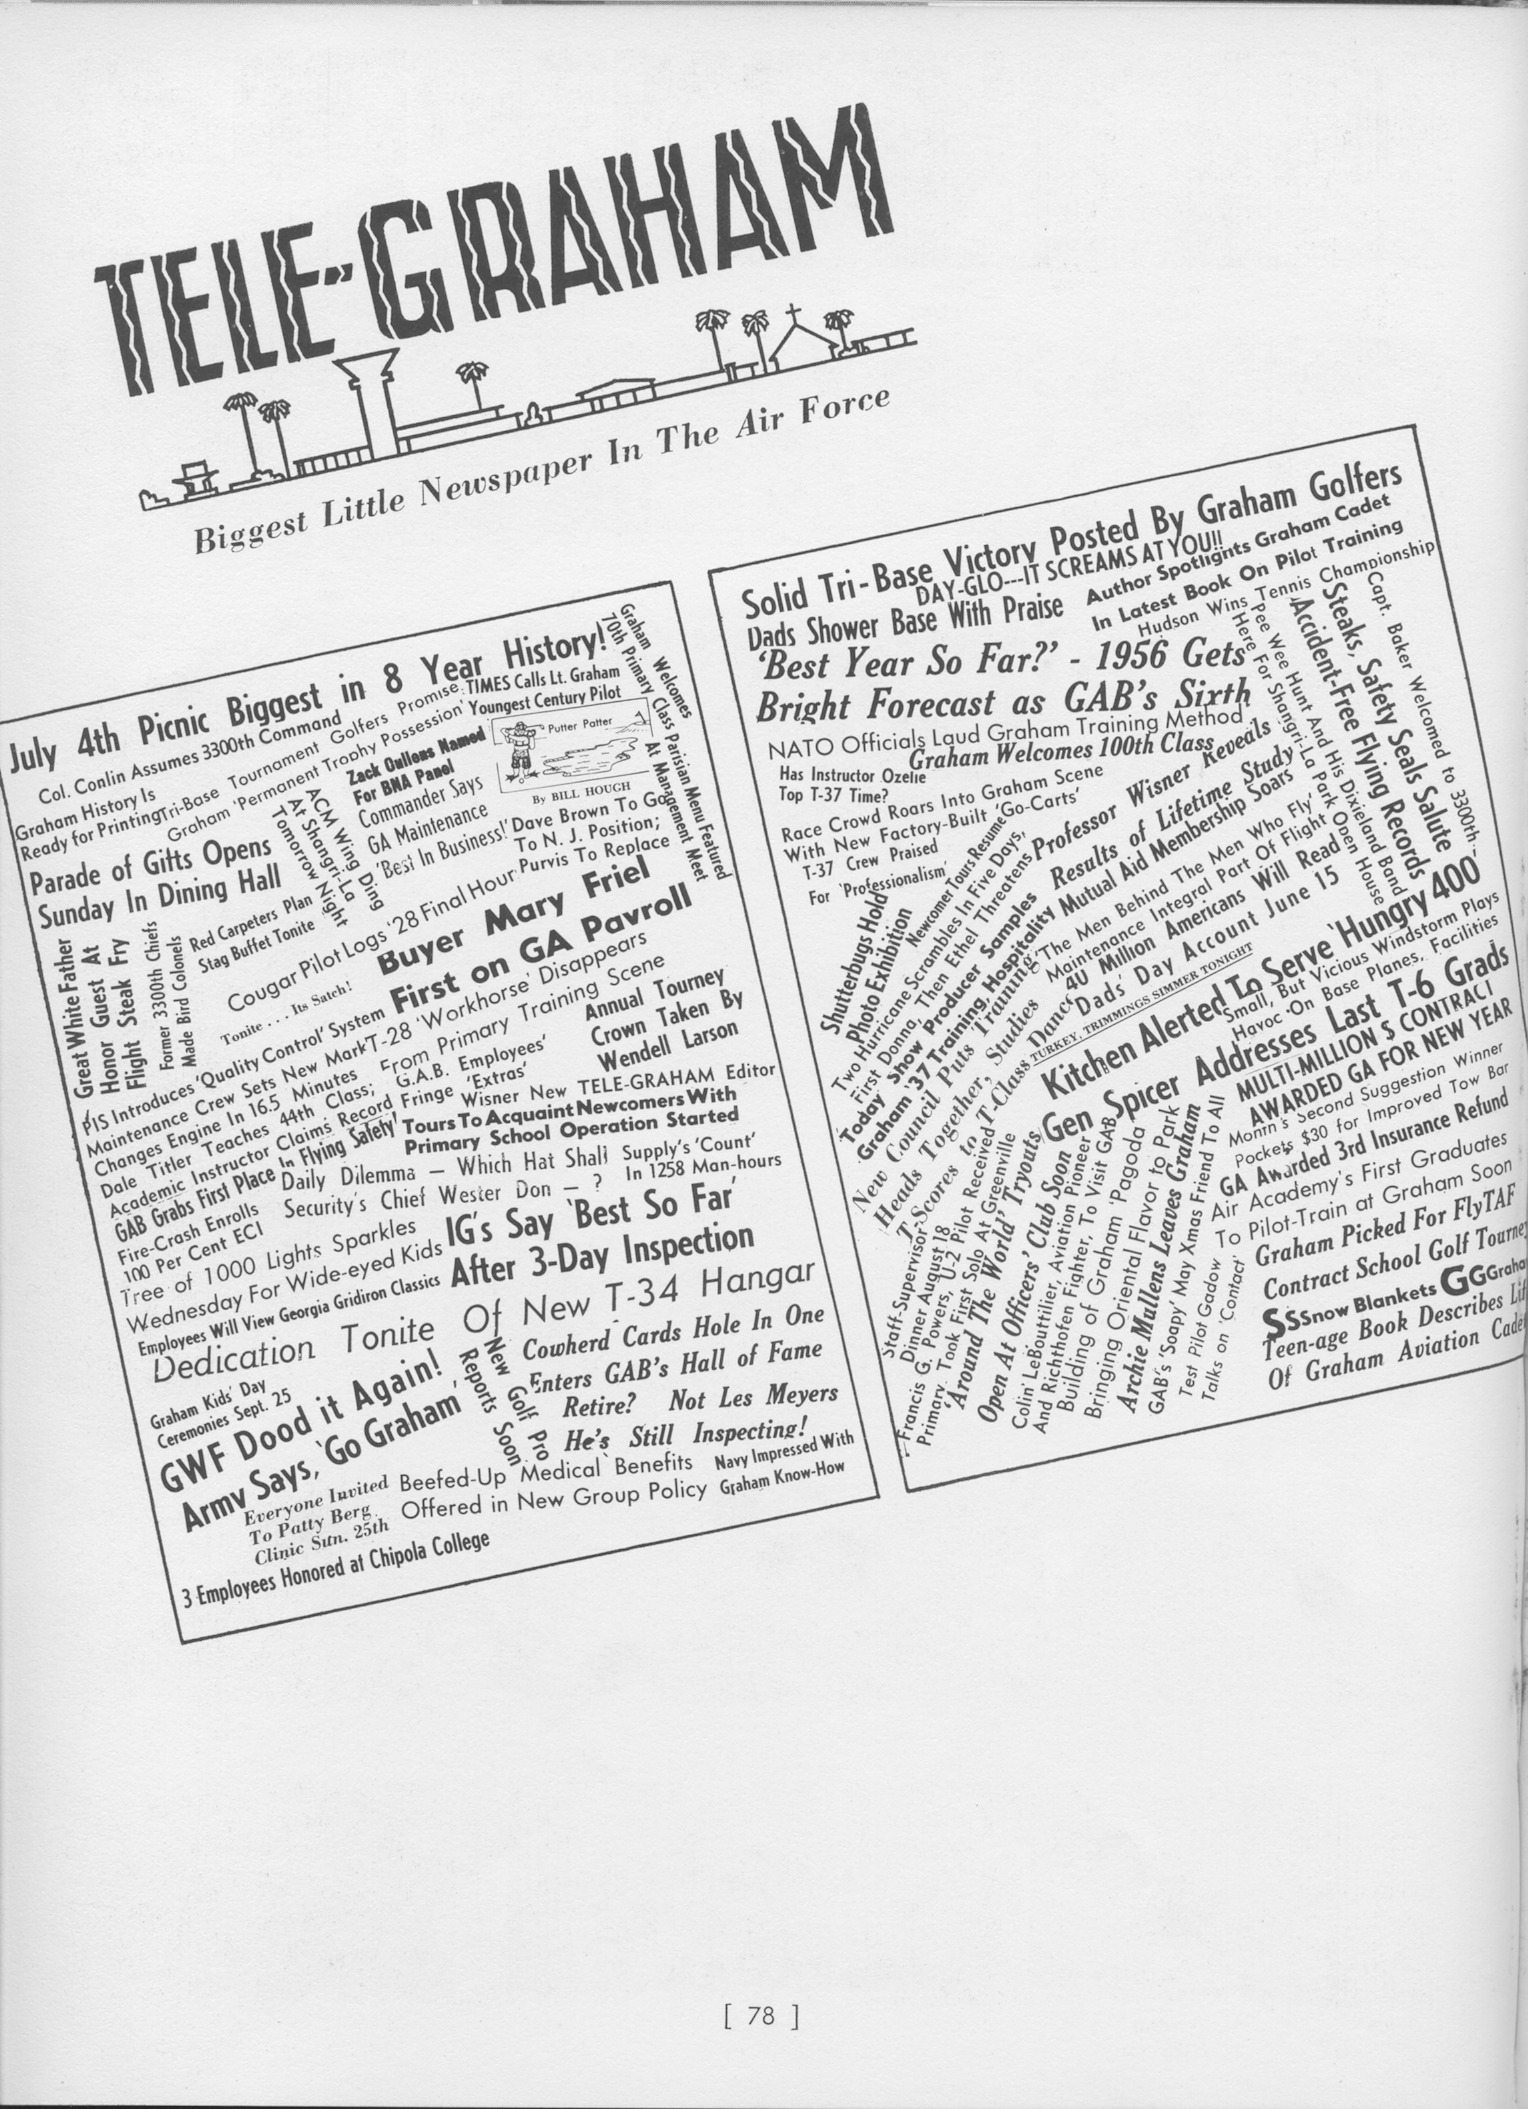 TELE-GRAHAM
Biggest Little Newspaper In The Air Force
July 4th Picnic Biggest in 8 Year History!
Col. Conlin Assumes 3300th Command
Graham History Is
Ready for Printing
Tri-Base Tournament Golfers Promise
Graham 'Permanent Trophy Possession'
TIMES Calls Lt. Graham
Youngest Century Pilot
Graham Welcomes
70th Primary Class
Parisian Menu Featured
At Management Meet
Putter Patter
By BILL HOUGH
Zack Oullens Named
For BMA Panel
Commander Says
GA Maintenance
'Best In Business!'
Dave Brown To Go
To N. J. Position;
Purvis To Replace
ACM Wing Ding
At Shangri-La
Tomorrow Night
Parade of Gifts Opens
Sunday In Dining Hall
Great White Father
Honor Guest At
Flight Steak Fry
Former 3300th Chiefs
Made Bird Colonels
Red Carpeters Plan
Stag Buffet Tonite
Cougar Pilot Logs '28 Final Hour
Tonite . . . Its Satch!
Buyer Mary Friel
First on GA Payroll
PIS Introduces 'Quality Control' System
T-28 'Workhorse' Disappears
From Primary Training Scene
Maintenance Crew Sets New Mark
Changes Engine In 16.5 Minutes
Annual Tourney
Crown Taken By
Wendell Larson
Dale Titler Teaches 44th Class;
Academic Instructor Claims Record
G.A.B. Employees'
Fringe 'Extras'
Wisner New TELE-GRAHAM Editor
GAB Grabs First Place In Flying Safety!
Tours To Acquaint Newcomers With
Primary School Operation Started
Fire-Crash Enrolls
100 Per Cent ECI
Daily Dilemma — Which Hat Shall
Security's Chief Wester Don — ?
Supply's 'Count'
In 1258 Man-hours
Tree of 1000 Lights Sparkles
Wednesday For Wide-eyed Kids
IG's Say 'Best So Far'
After 3-Day Inspection
Employees Will View Georgia Gridiron Classics
Dedication Tonite Of New T-34 Hangar
Graham Kids' Day
Ceremonies Sept. 25
New Golf Pro
Reports Soon
Cowherd Cards Hole In One
Enters GAB's Hall of Fame
GWF Dood it Again!
Army Says, 'Go Graham'
Retire? Not Les Meyers
He's Still Inspecting!
Everyone Invited
To Patty Berg
Clinic Sun. 25th
Beefed-Up Medical Benefits
Offered in New Group Policy
Navy Impressed With
Graham Know-How
3 Employees Honored at Chipola College
Solid Tri-Base Victory Posted By Graham Golfers
DAY-GLO---IT SCREAMS AT YOU!!
Dads Shower Base With Praise
Author Spotlights Graham Cadet
In Latest Book On Pilot Training
Hudson Wins Tennis Championship
'Best Year So Far?' - 1956 Gets
Bright Forecast as GAB's Sixth
NATO Officials Laud Graham Training Method
Graham Welcomes 100th Class
Has Instructor Ozelie
Top T-37 Time?
Race Crowd Roars Into Graham Scene
With New Factory-Built 'Go-Carts'
T-37 Crew Praised
For 'Professionalism'
Capt. Baker Welcomed to 3300th
Steaks, Safety Seals Salute
Accident-Free Flying Records
Pee Wee Hunt And His Dixieland Band
Here For Shangri-La Park Open House
Professor Wisner Reveals
Results of Lifetime Study
Newcomer Tours Resume
Shutterbugs Hold
Photo Exhibition
Two Hurricane Scrambles In Five Days,
First Donna, Then Ethel Threatens
Today Show Producer Samples
Graham '37 Training, Hospitality
Mutual Aid Membership Soars
'The Men Behind The Men Who Fly'
Maintenance Integral Part Of Flight
40 Million Americans Will Read
'Dads' Day Account June 15
New Council Puts Training
Heads Together, Studies
T-Scores to T-Class Dance
TURKEY, TRIMMINGS SIMMER TONIGHT
Kitchen Alerted To Serve 'Hungry 400'
Small, But Vicious Windstorm Plays
Havoc On Base Planes, Facilities
Gen Spicer Addresses Last T-6 Grads
MULTI-MILLION $ CONTRACT
AWARDED GA FOR NEW YEAR
Month's Second Suggestion Winner
Pockets $30 for Improved Tow Bar
GA Awarded 3rd Insurance Refund
Air Academy's First Graduates
To Pilot-Train at Graham Soon
Graham Picked For FlyTAF
Contract School Golf Tourney
SSSnow Blankets GGGraha
Teen-age Book Describes Lif
Of Graham Aviation Cadet
Staff-Supervisor
Dinner August 18
Francis G. Powers, U-2 Pilot Received
Primary, Took First Solo At Greenville
'Around The World' Tryouts
Open At Officers' Club Soon
Colin LeBouttilier, Aviation Pioneer
And Richthofen Fighter, To Visit GAB
Building of Graham 'Pagoda'
Bringing Oriental Flavor to Park
Archie Mullens Leaves Graham
GAB's 'Soapy' May Xmas Friend To All
Test Pilot Gadow
Talks on 'Contact'
[ 78 ]